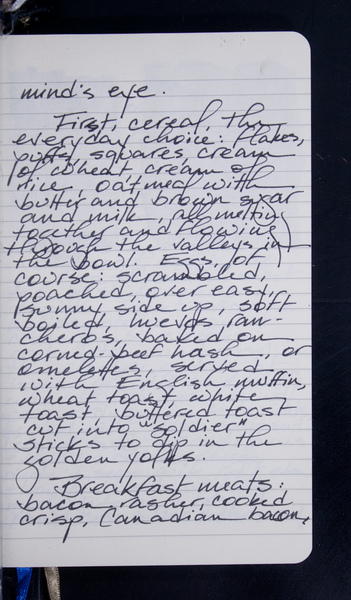 mind's eye.
First, cereal, the
everyday choice: flakes,
puffs, squares, cream
of wheat, cream of
rice, oatmeal with
butter and brown sugar
and milk, all melting
together and flowing
through the valleys in
the bowl. Eggs, of
course: scrambled,
poached, over easy,
sunny side up, soft
boiled, huevos ran-
cheros, baked on
corned-beef hash, or
omelettes, served
with English muffin,
wheat toast, white
toast, buttered toast
cut into "soldier"
sticks to dip in the
golden yolks.
Breakfast meats:
bacon, rasher, cooked
crisp, Canadian bacon,